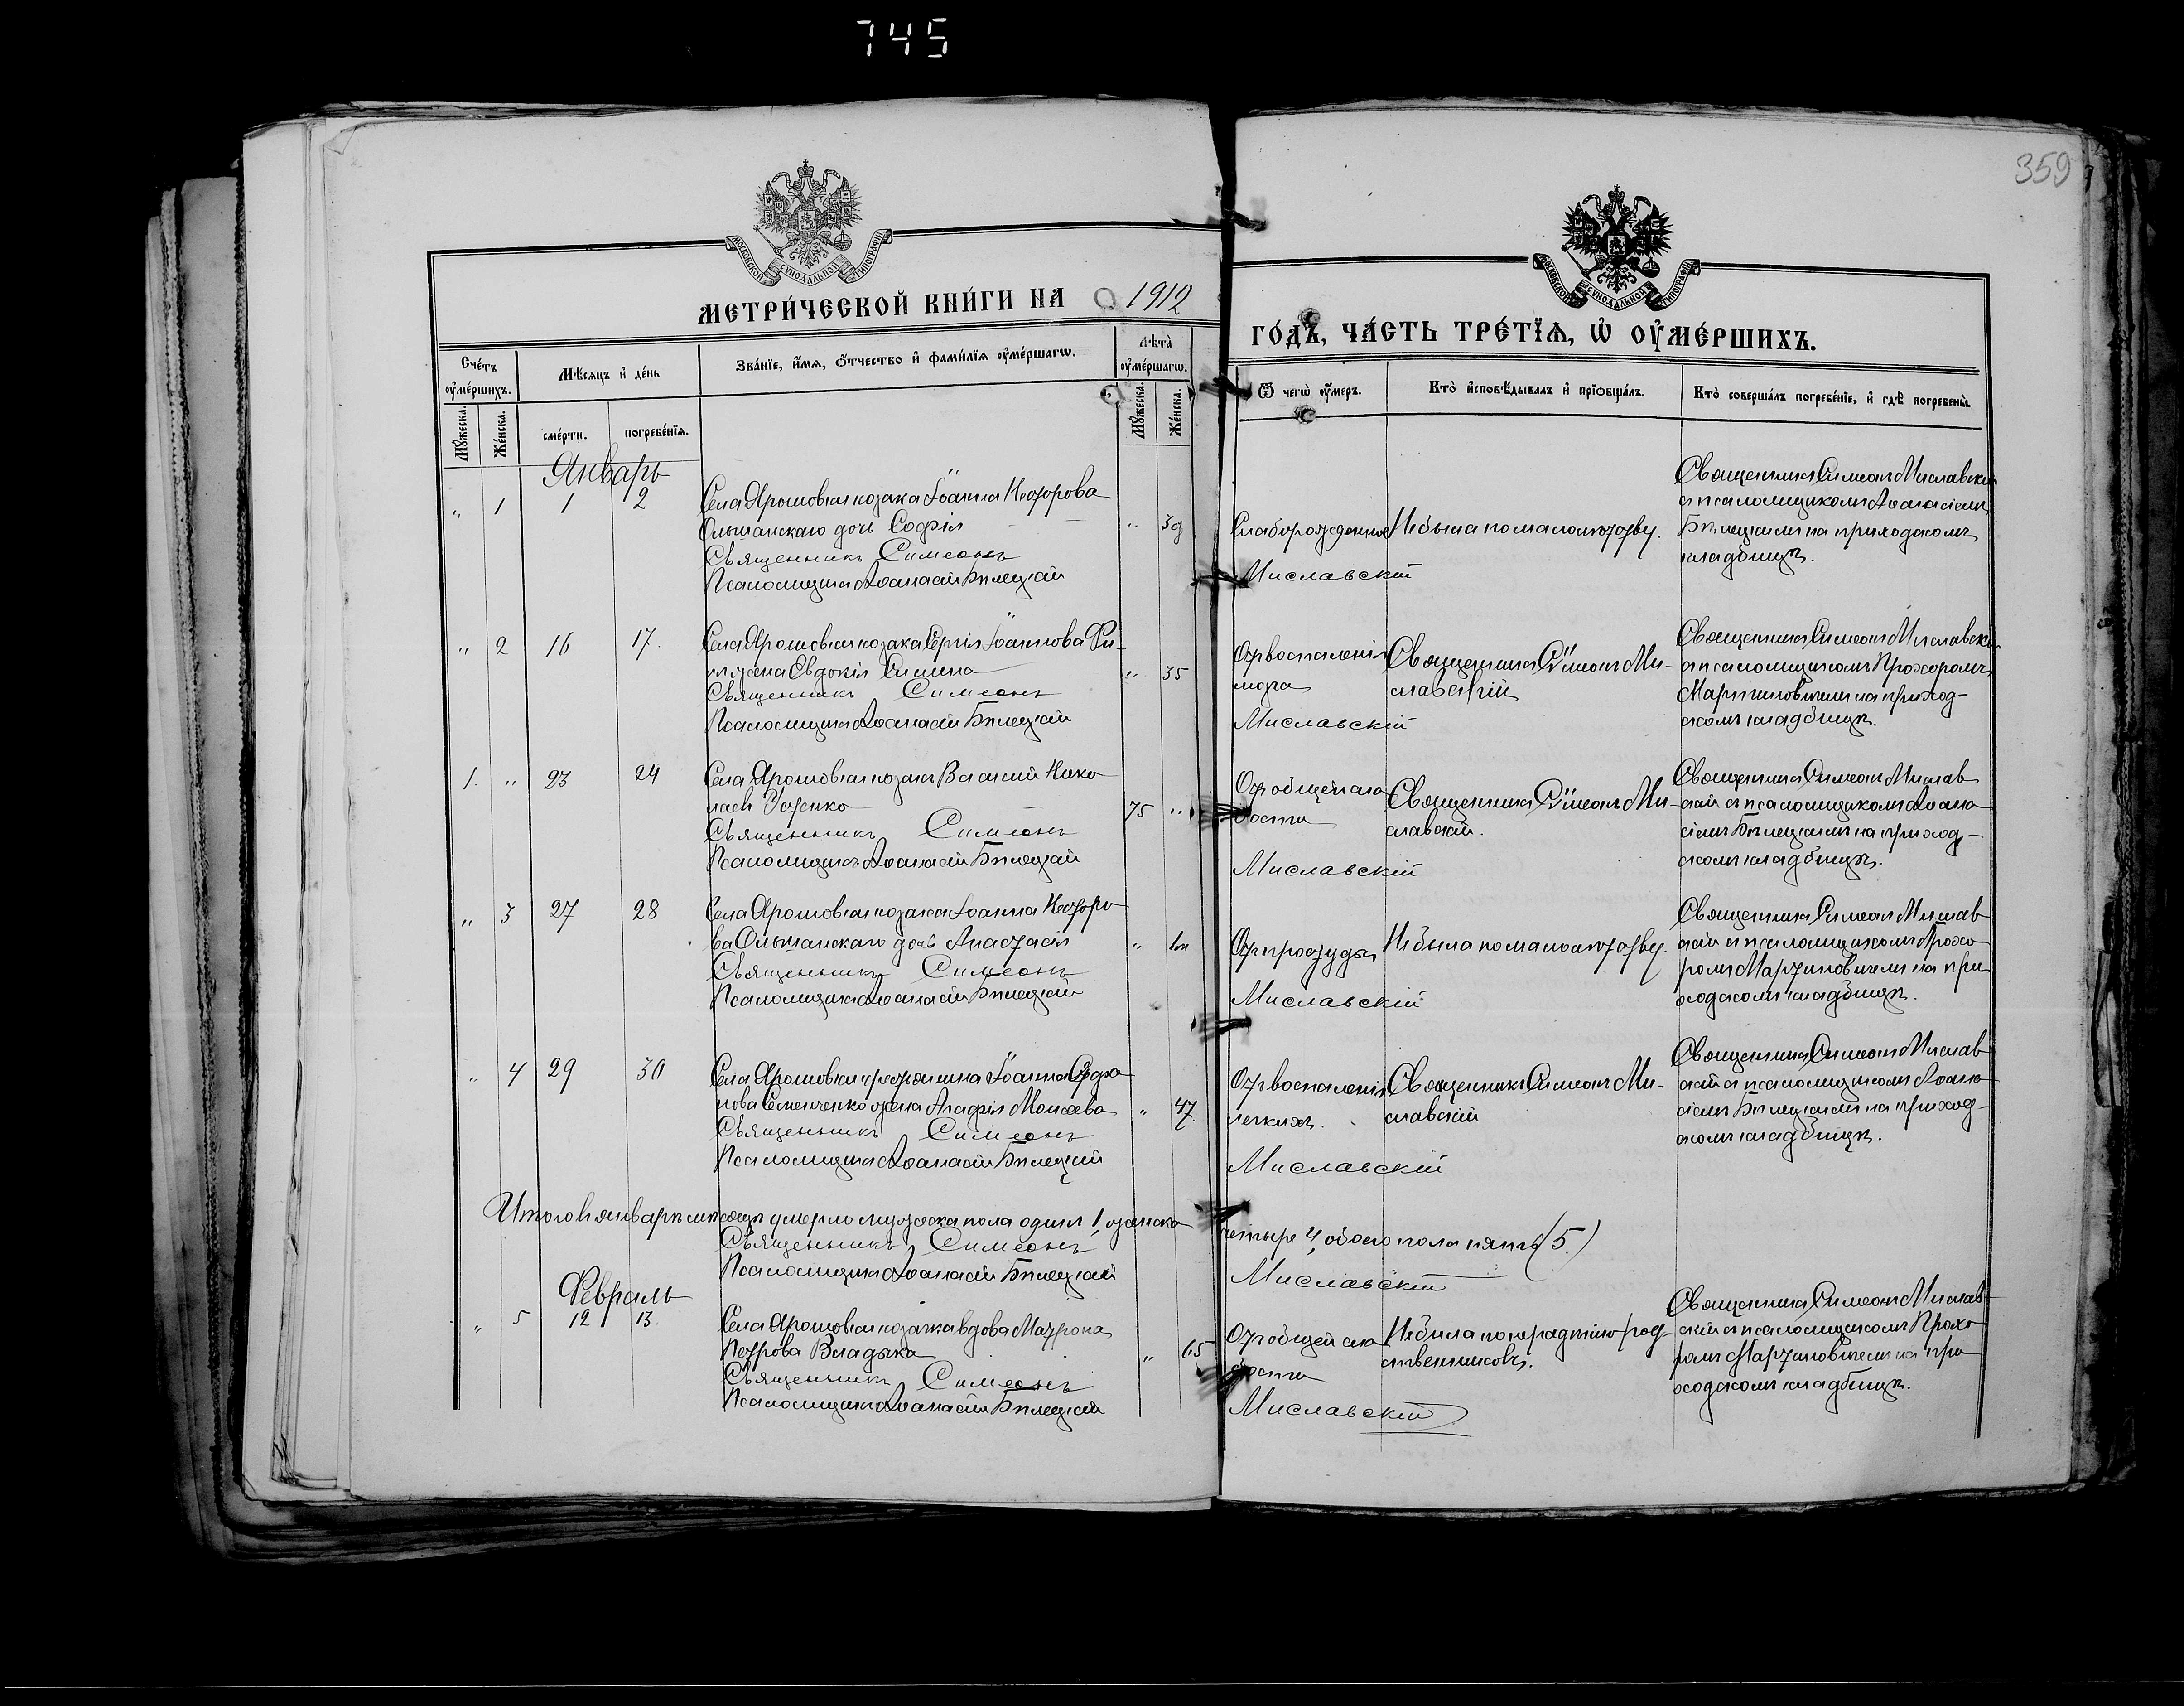 745
359
МОСКОВСКОЙ СѴНОДАЛЬНОЙ ТИПОГРАФІИ
МОСКОВСКОЙ СѴНОДАЛЬНОЙ ТИПОГРАФІИ
МЕТРИ́ЧЕСКОЙ КНИ́ГИ НА 1912
ГО́ДЪ, ЧА́СТЬ ТРЕ́ТЇѦ, Ѡ ОУМЕ́РШИХЪ.
Сче́тъ оумершихъ.
Мѣсяцъ и де́нь
Зва́нїе, и́мя, ѻ́тчество и фами́лїя оуме́ршагѡ.
Лѣта̀ оуме́ршагѡ.
Ѿ чегѡ̀ оу́меръ.
Кто̀ исповѣ́дывалъ и прїобща́лъ.
Кто̀ соверша́лъ погребе́нїе, и гдѣ̀ погребены̀.
Мꙋ́жеска.
Же́нска.
сме́рти.
погребе́нїя.
Мꙋ́жеска.
Же́нска.
Январь
„ 1 1 2
Села Ярошовки козака Іоанна Несторова
Ольшанскаго дочь Софія
Священникъ Симеонъ
Псаломщикъ Аѳанасій Бѣлецкій
„ 3д
Слаборожденія
Миславскій
Не была по малолѣтству.
Священникъ Симеонъ Миславскій
съ псаломщикомъ Аѳанасіемъ
Бѣлецкимъ на приходскомъ
кладбищѣ.
„ 2 16 17.
Села Ярошовки козака Сергія Іоаннова
жена Евдокія
Священникъ Симеонъ
Псаломщикъ Аѳанасій Бѣлецкій
„ 35
Отъ воспаленія
мозга
Миславскій
Священникъ Симеонъ Ми-
славскій
Священникъ Симеонъ Миславскій
съ псаломщикомъ Прохоромъ
Мартиновичемъ на приход-
скомъ кладбищѣ.
1. „ 23 24
Села Ярошовки козакъ Василій Нико
лаевъ Усенко
Священникъ Симеонъ
Псаломщикъ Аѳанасій Бѣлецкій
75 „
Отъ общей сла
бости
Миславскій
Священникъ Симеонъ Ми-
славскій.
Священникъ Симеонъ Мислав
скій съ псаломщикомъ Аѳана
сіемъ Бѣлецкимъ на приход-
скомъ кладбищѣ.
„ 3 27 28
Села Ярошовки козака Іоанна Несторо
ва Ольшанскаго дочь Анастасія
Священникъ Симеонъ
Псаломщикъ Аѳанасій Бѣлецкій
„ 1м
Отъ простуды
Миславскій
Не была по малолѣтству.
Священникъ Симеонъ Мислав
скій съ псаломщикомъ Прохо
ромъ Мартиновичемъ на при
ходскомъ кладбищѣ.
„ 4 29 30
Села Ярошовки крестьянина Іоанна
Семенченко жена Агафія Моисеева
Священникъ Симеонъ
Псаломщикъ Аѳанасій Бѣлецкій
„ 47.
Отъ воспаленія
легкихъ.
Миславскій
Священникъ Симеонъ Ми-
славскій
Священникъ Симеонъ Мислав
скій съ псаломщикомъ Аѳана
сіемъ Бѣлецкимъ на приход-
скомъ кладбищѣ.
Итого въ январѣ мѣсяцѣ умерло мужеска пола одинъ 1, женска
четыре 4, обоего пола пять (5.)
Священникъ Симеонъ Миславскій
Псаломщикъ Аѳанасій Бѣлецкій
Февраль
„ 5 12 13.
Села Ярошовки козачка вдова Матрона
Петрова Владыка
Священникъ Симеонъ
Псаломщикъ Аѳанасій Бѣлецкій
„ 65
Отъ общей сла
бости
Миславскій
Не была по нерадѣнію род
ственниковъ.
Священникъ Симеонъ Мислав-
скій съ псаломщикомъ Прохо
ромъ Мартиновичемъ на при
ходскомъ кладбищѣ.